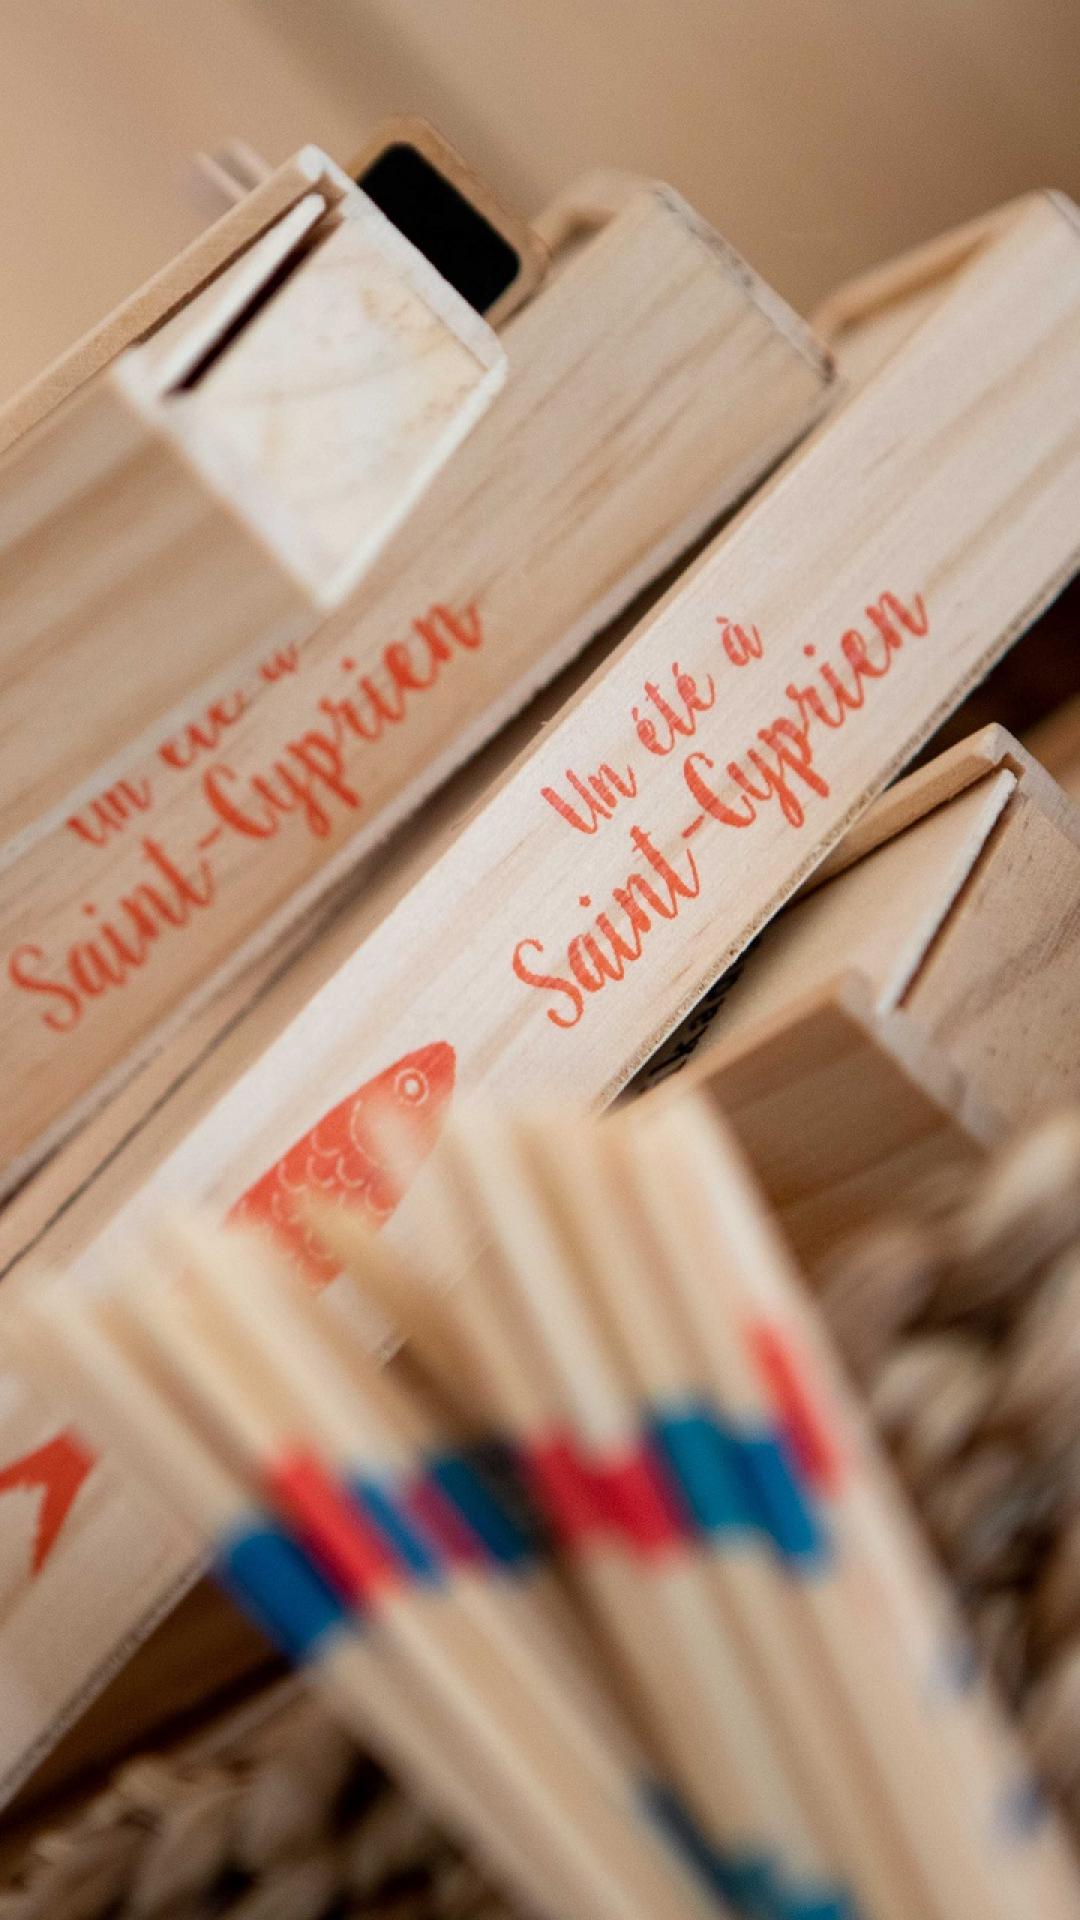 un
Saint-Cyprien
Un été à
Saint-Cyprien